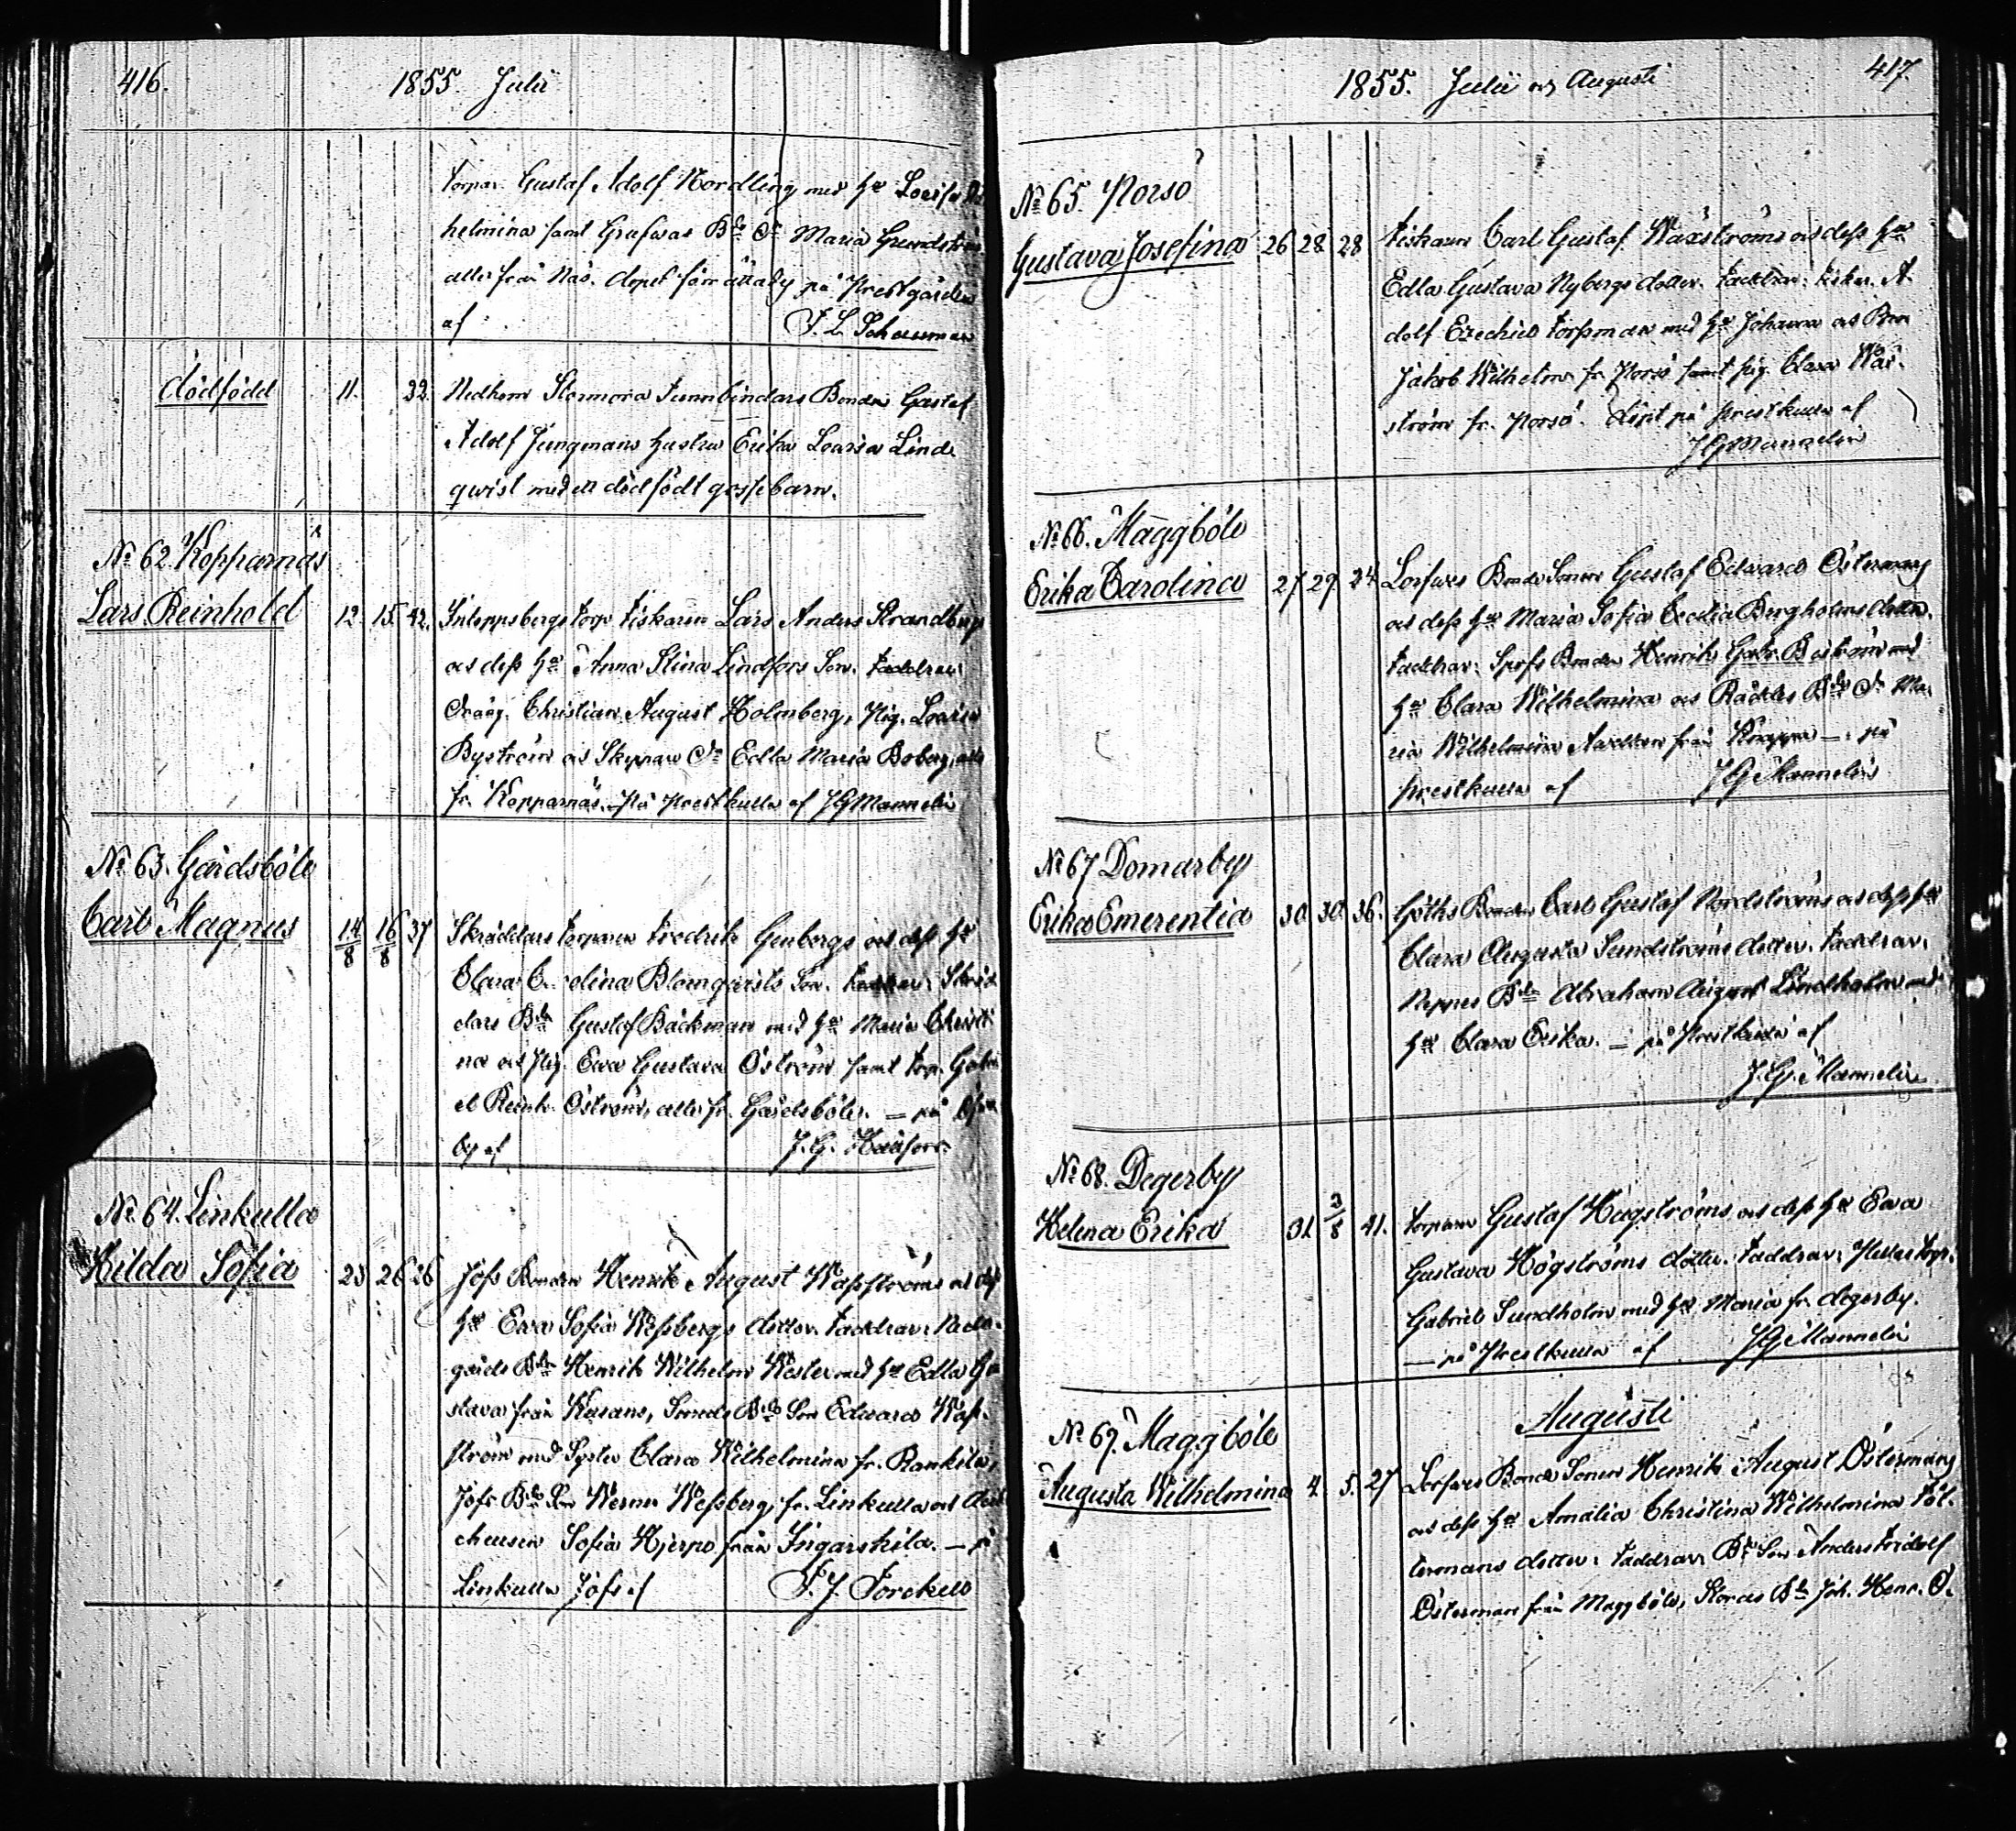 416.
1855 Julii
torpar. Gustaf Adolf Nordling med h. Lovisa
helmina samt Grefwas Bde Dr Maria Grundström
alla från Näs. dopet förrättadt på Prestgården
af F. L. Schauman
dödfödd 11. 32. Stormora Bonden Gustaf
Adolf Jungmans hustru Erika Lovisa Lind
qwist med ett dödfödt gossebarn.
No 62 Kopparnäs
Lars Reinhold 12. 15. 42. torp Fiskaren Lars Anders Strandberg
och dess Hu Anna Stina Lindfors Son. Faddrar:
Dräng. Christian August Holmberg, Pig. Lovisa
Byström och Dr Edla Maria Boberg, alla
fr. Kopparnäs. På Prestkulla af JGMannelin
No 63. Gårdsböle
Carl Magnus 14/8 16/8 37 Skräddars torparen Fredrik Genbergs och dess Hu
Clara Carolina Blomqwists Son. Faddrar: Skräd
dars Bde Gustaf Bäckman med Hu Maria Christi
na och Pig. Ewa Gustava Öström samt torp. Gabri
el Reinh. Öström, alla fr. Gårdsböle. — på
by af J. G. Hadfors.
No 64. Linkulla
Hilda Sofia 23 26 26 Jofs Bonden Henrik August Wassströms och dess
Hu Ewa Sofia Wessbergs dotter. Faddrar: Neder
gårds Bde Henrik Wilhelm Wester med Hu Edla Gu
stava från Kusans, Smeds Bde Son Edward Wass
ström med Syster Clara Wilhelmina fr. Rankila,
Jofs Bde Son Werner Wessberg fr. Linkulla och
Sofia Hjerpe från Ingarskila. — på
Linkulla Jofs af F. J. Forckell
417.
1855. Julii och Augusti
No 65. Porsö
Gustava Josefina 26 28 28 Fiskaren Carl Gustaf Wäxströms och dess Hu
Edla Gustava Nybergs dotter. Faddrar: Fiskar. A
dolf Ezechiel Forssman med Hu Johanna och
Jakob Wilhelm fr. Porsö samt pig. Clara Wäx
ström fr. Porsö. döpt på Prestkulla af
JGMannelin
No 66. Maggböle
Erika Carolina 27 29 24 Bonde Sonen Gustaf Edward Östermans
och dess Hu Maria Sofia Cecilia Bergholms dotter.
Faddrar: Bonden Henrik Gabr. Boström med
Hu Clara Wilhelmina och Bde Dr Ma
ria Wilhelmina från — på
Prestkulla af JGMannelin
No 67 Domarby
Erika Emerentia 30 30 36. Göths Bonden Carl Gustaf Nordströms och dess Hu
Clara Augusta Sundströms dotter. Faddrar:
Bde Abraham August Lindholm med
Hu Clara Erika. — på Prestkulla af
J. G. Mannelin
No 68. Degerby
Helena Erika 31 2/8 41. torparen Gustaf Högströms och dess Hu Ewa
Gustava Högströms dotter. Faddrar: torp.
Gabriel Sundholm med Hu Maria fr. degerby.
— på Prestkulla af JGMannelin
Augusti
No 69. Maggböle
Augusta Wilhelmina 4. 5. 27 Bonde Sonen Henrik August Östermans
och dess Hu Amalia Christina Wilhelmina Föl
termans dotter: Faddrar: Bde Son Anders Fridolf
Österman från Maggböle, Storas Bde Joh. Henr. Ö